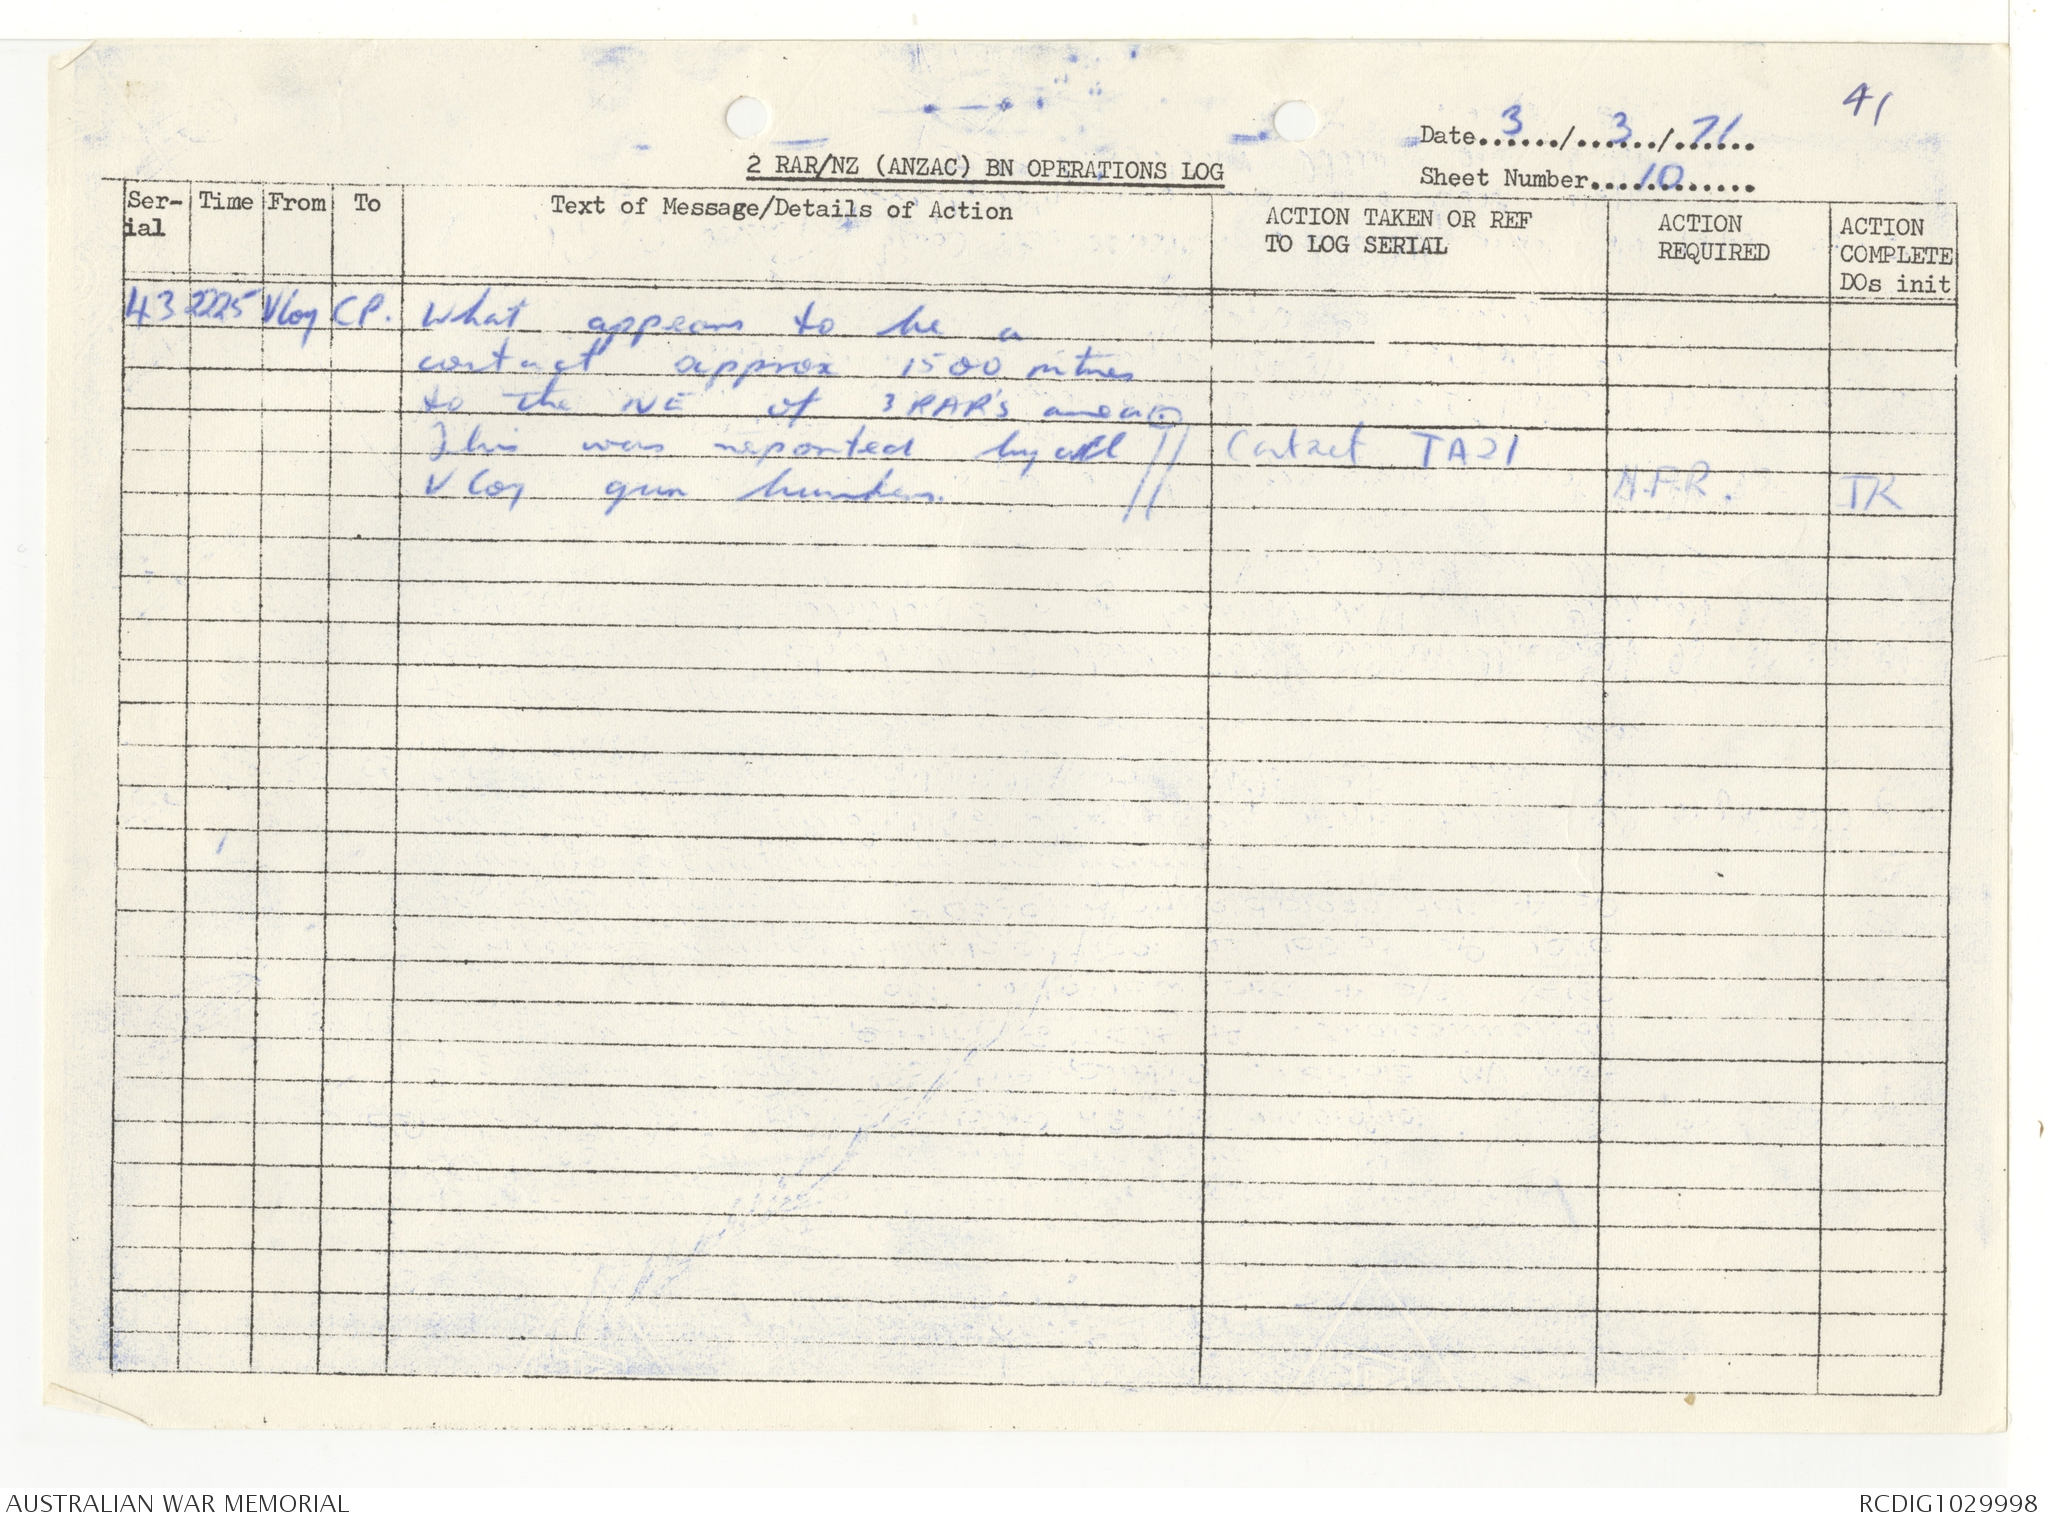 41
Date 3/3/71
2 RAR/NZ (ANZAC) BN OPERATIONS LOG
Sheet Number 10
Ser-ial Time From To Text of Message/Details of Action ACTION TAKEN OR REF TO LOG SERIAL ACTION REQUIRED ACTION COMPLETE DOs init
43 2225 VCoy CP. What appears to be a
contact approx 1500 metres
to the NE of 3 RAR's area.
This was reported by all Contact TA21
V Coy gun bunkers. N.F.R. TK
AUSTRALIAN WAR MEMORIAL
RCDIG1029998